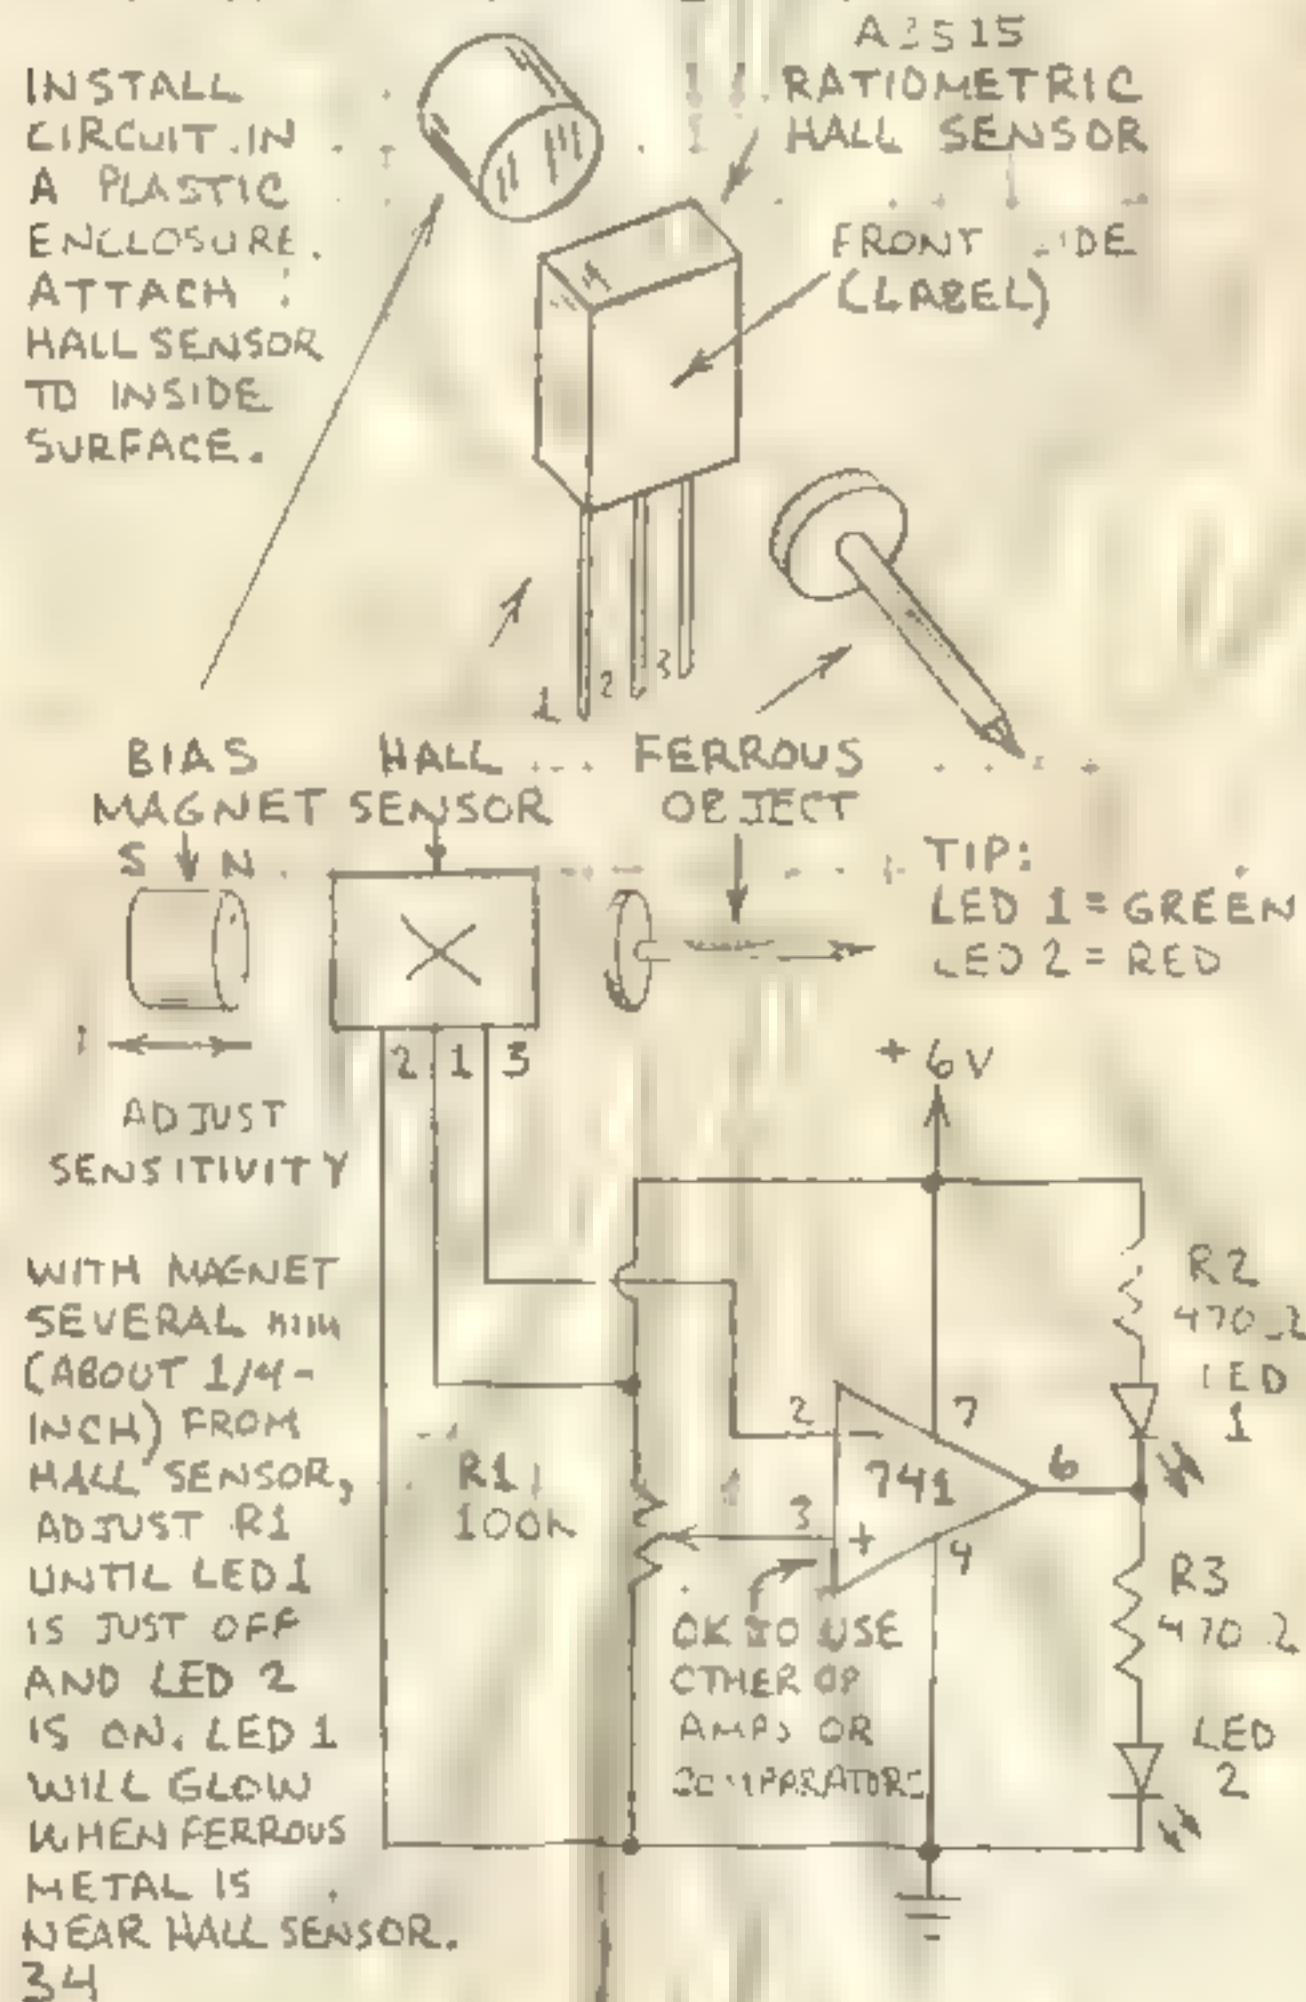 A3515
RATIOMETRIC
HALL SENSOR
INSTALL
CIRCUIT IN
A PLASTIC
ENCLOSURE.
ATTACH
HALL SENSOR
TO INSIDE
SURFACE.
FRONT
(LABEL)
1 2 3
BIAS
MAGNET
S N
HALL
SENSOR
FERROUS
OBJECT
TIP:
LED 1 = GREEN
LED 2 = RED
2 1 3
ADJUST
SENSITIVITY
+6V
WITH MAGNET
SEVERAL mm
(ABOUT 1/4-
INCH) FROM
HALL SENSOR,
ADJUST R1
UNTIL LED 1
IS JUST OFF
AND LED 2
IS ON. LED 1
WILL GLOW
WHEN FERROUS
METAL IS
NEAR HALL SENSOR.
R1
100K
2
3
741
7
4
6
+
-
OK TO USE
OTHER OP
AMPS OR
COMPARATORS
R2
470 Ω
LED
1
R3
470 Ω
LED
2
34